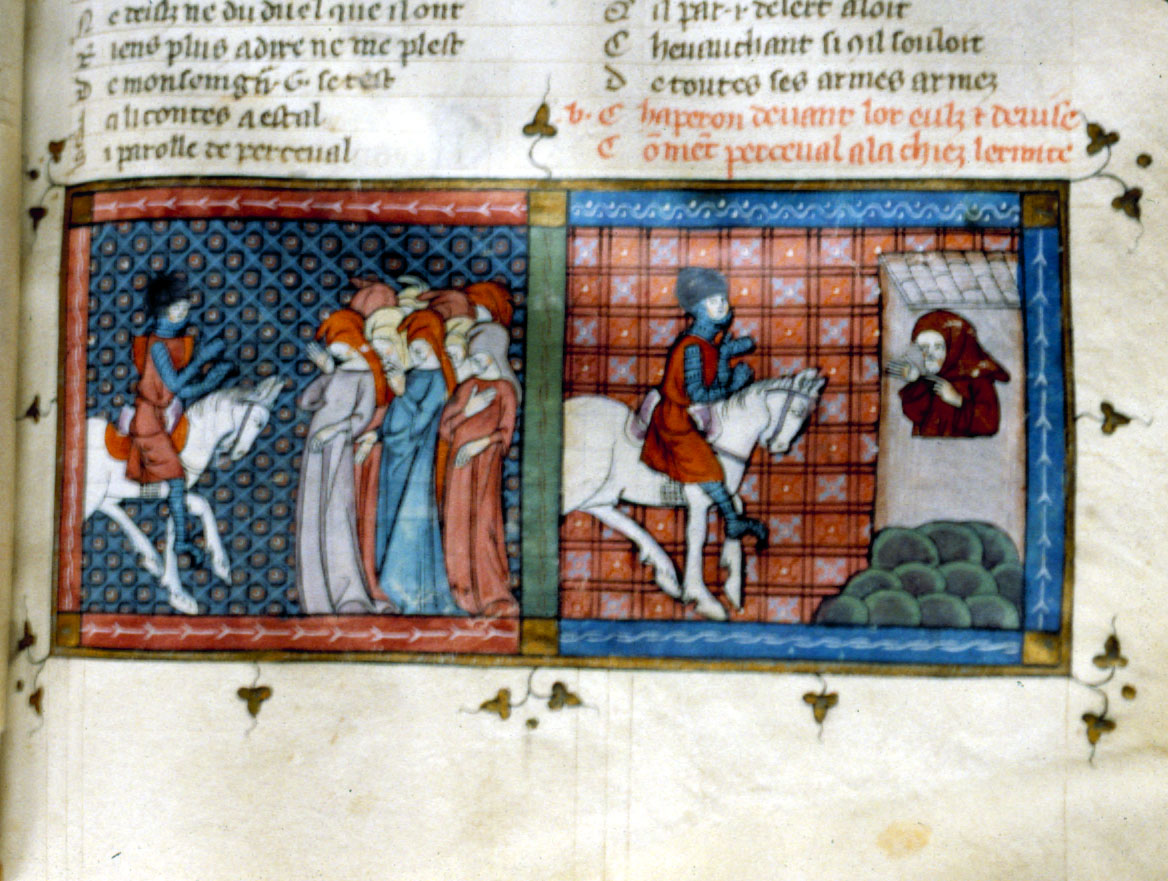 e teisz ne du duel que il ont
R iens plus a dire ne me plest
D e monseingn̄r G· se test
a li contes a estal
i parolle de perceual
Q il par r desert aloit
C heuauchant si 9 il souloit
D e toutes ses armes armez
v· C haperon deuant lor eulz ⁊ deuise
C ōmēt perceual ala chiez lermite